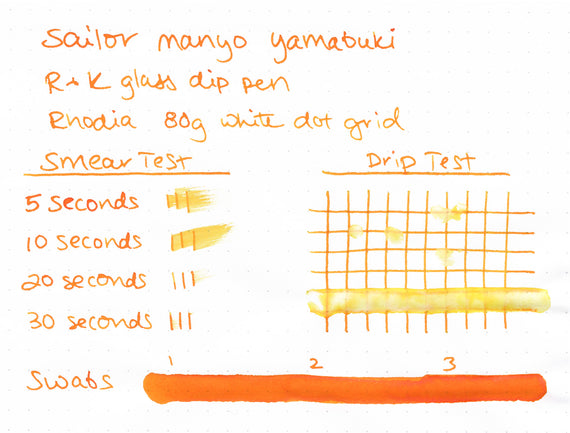 Sailor manyo yamabuki
R+K glass dip pen
Rhodia 80g white dot grid
Smear Test
5 seconds
10 seconds
20 seconds
30 seconds
Drip Test
Swabs
1 2 3